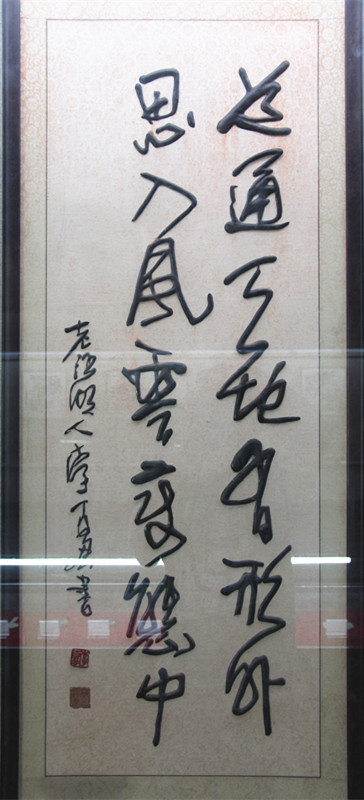 道通天地有形外
思入風雲變態中
老 湖人李丁 書